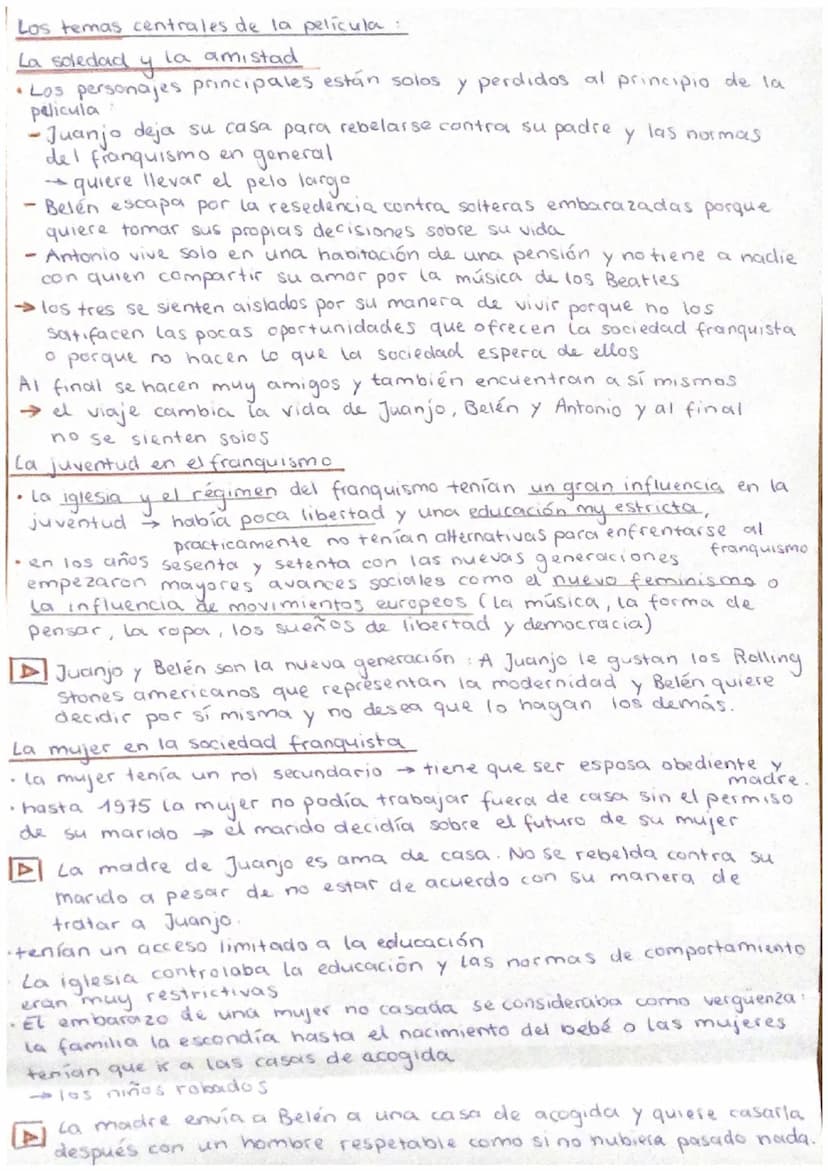 Los temas centrales de la película :
La soledad y la amistad
• Los personajes principales están solos y perdidos al principio de la
película :
- Juanjo deja su casa para rebelarse contra su padre y las normas
del franquismo en general
→ quiere llevar el pelo largo
- Belén escapa por la resedencia contra solteras embarazadas porque
quiere tomar sus propias decisiones sobre su vida
- Antonio vive solo en una habitación de una pensión y no tiene a nadie
con quien compartir su amor por la música de los Beatles
→ los tres se sienten aislados por su manera de vivir porque no los
satifacen las pocas oportunidades que ofrecen la sociedad franquista
o porque no hacen lo que la sociedad espera de ellos
Al final se hacen muy amigos y también encuentran a sí mismos
→ el viaje cambia la vida de Juanjo, Belén y Antonio y al final
no se sienten solos
La juventud en el franquismo
• La iglesia y el régimen del franquismo tenían un gran influencia en la
juventud → había poca libertad y una educación my estricta,
practicamente no tenían alternativas para enfrentarse al
franquismo
• en los años sesenta y setenta con las nuevas generaciones
empezaron mayores avances sociales como el nuevo feminismo o
la influencia de movimientos europeos (la música, la forma de
pensar, la ropa, los sueños de libertad y democracia)
▷ Juanjo y Belén son la nueva generación : A Juanjo le gustan los Rolling
Stones americanos que representan la modernidad y Belén quiere
decidir por sí misma y no desea que lo hagan los demás.
La mujer en la sociedad franquista
• la mujer tenía un rol secundario → tiene que ser esposa obediente y
madre.
• hasta 1975 la mujer no podía trabajar fuera de casa sin el permiso
de su marido → el marido decidía sobre el futuro de su mujer
▷ La madre de Juanjo es ama de casa. No se rebelda contra su
marido a pesar de no estar de acuerdo con su manera de
tratar a Juanjo.
• tenían un acceso limitado a la educación
• La iglesia controlaba la educación y las normas de comportamiento
eran muy restrictivas
• El embarazo de una mujer no casada se consideraba como vergüenza:
la familia la escondía hasta el nacimiento del bebé o las mujeres
tenían que ir a las casas de acogida
→ los niños robados
▷ La madre envía a Belén a una casa de acogida y quiere casarla
después con un hombre respetable como si no hubiera pasado nada.